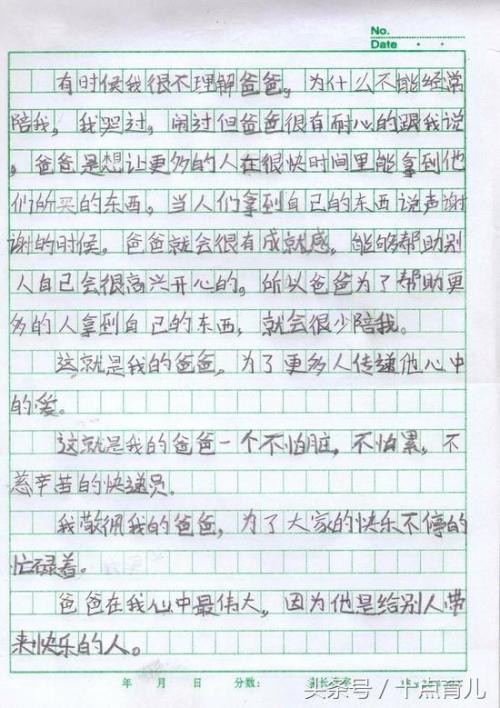 No.
Date
有时候我很不理解爸爸，为什么不能经常
陪我，我哭过，闹过但爸爸很有耐心的跟我说
，爸爸是想让更多的人在很快时间里能拿到他
们所买的东西，当人们拿到自己的东西说声谢
谢的时候。爸爸就会很有成就感，能够帮助别
人自己会很高兴开心的。所以爸爸为了帮助更
多的人拿到自己的东西，就会很少陪我。
这就是我的爸爸，为了更多人传递他心中
的爱。
这就是我的爸爸一个不怕脏，不怕累，不
慈辛苦的快递员。
我敬佩我的爸爸，为了大家的快乐不停的
忙碌着。
爸爸在我心中最伟大，因为他是给别人带
来快乐的人。
年 月 日 分数：
头条号／十点育儿